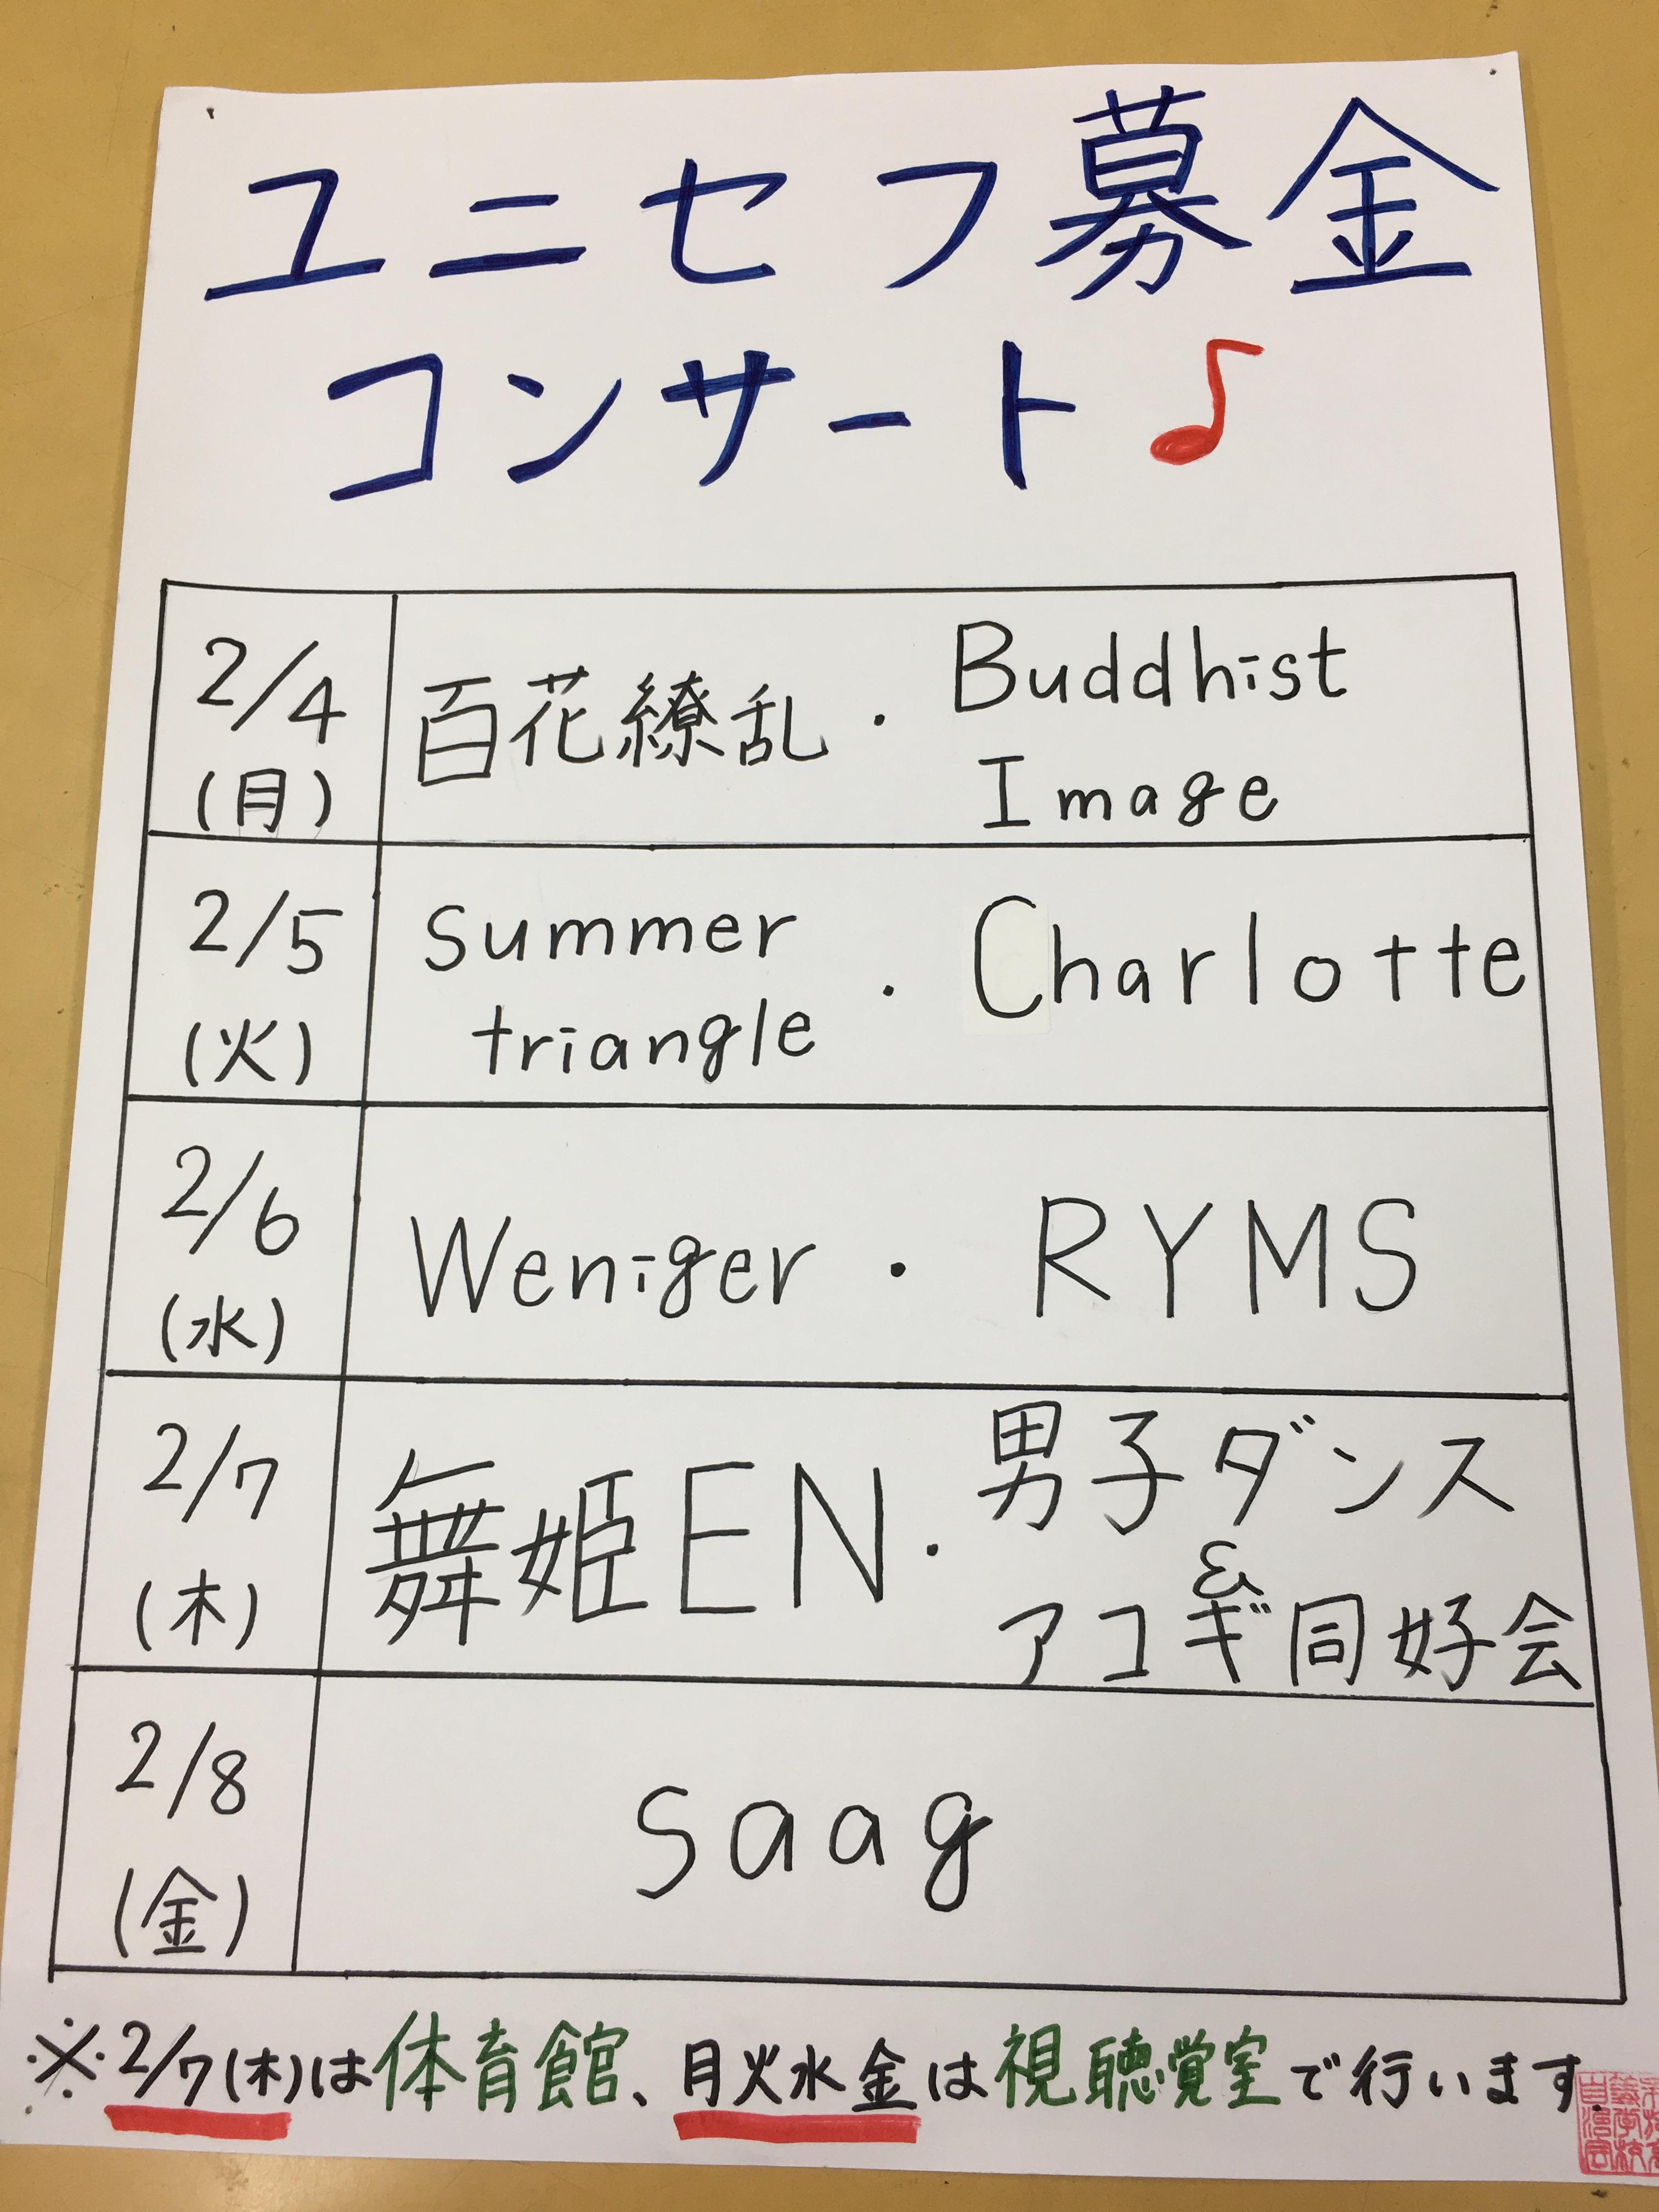 ユニセフ募金
コンサート♪
2/4
(月)
百花繚乱・Buddhist
Image
2/5
(火)
summer
triangle
・Charlotte
2/6
(水)
Weniger・RYMS
2/7
(木)
舞姫EN・男子ダンス
&
アコギ同好会
2/8
(金)
saag
※2/7(木)は体育館、月火水金は視聴覚室で行います。